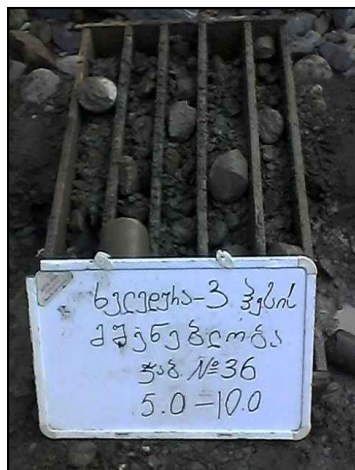 ხელედურა-3 ჰესის
მშენებლობა
ჭაბ №36
5.0-10.0